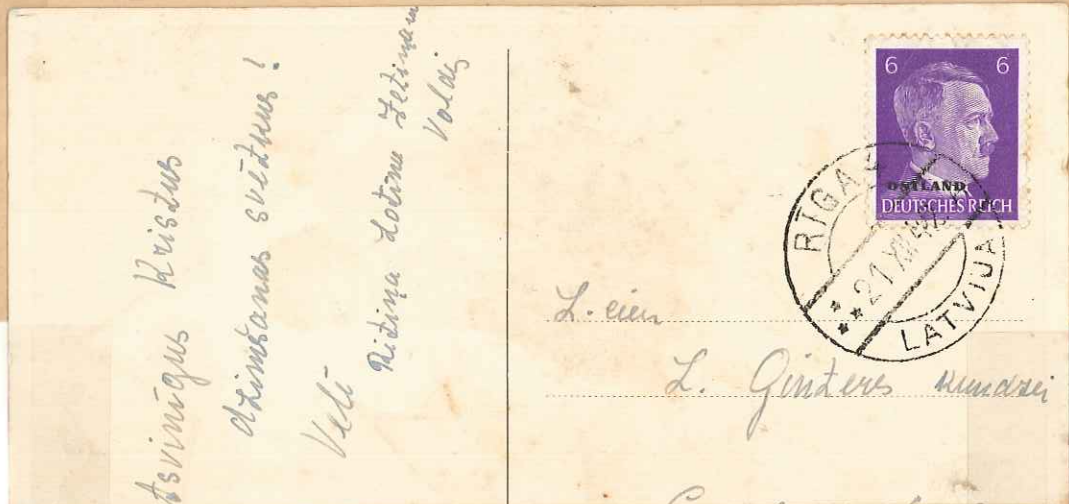 tsvinīgus Kristus
dzimšanas svētkus!
Vēlī
Voldis
6 6
OSTLAND
DEUTSCHES REICH
RĪGAS
21 XII
LATVIJA
L. cien
L. Ginters kundzei